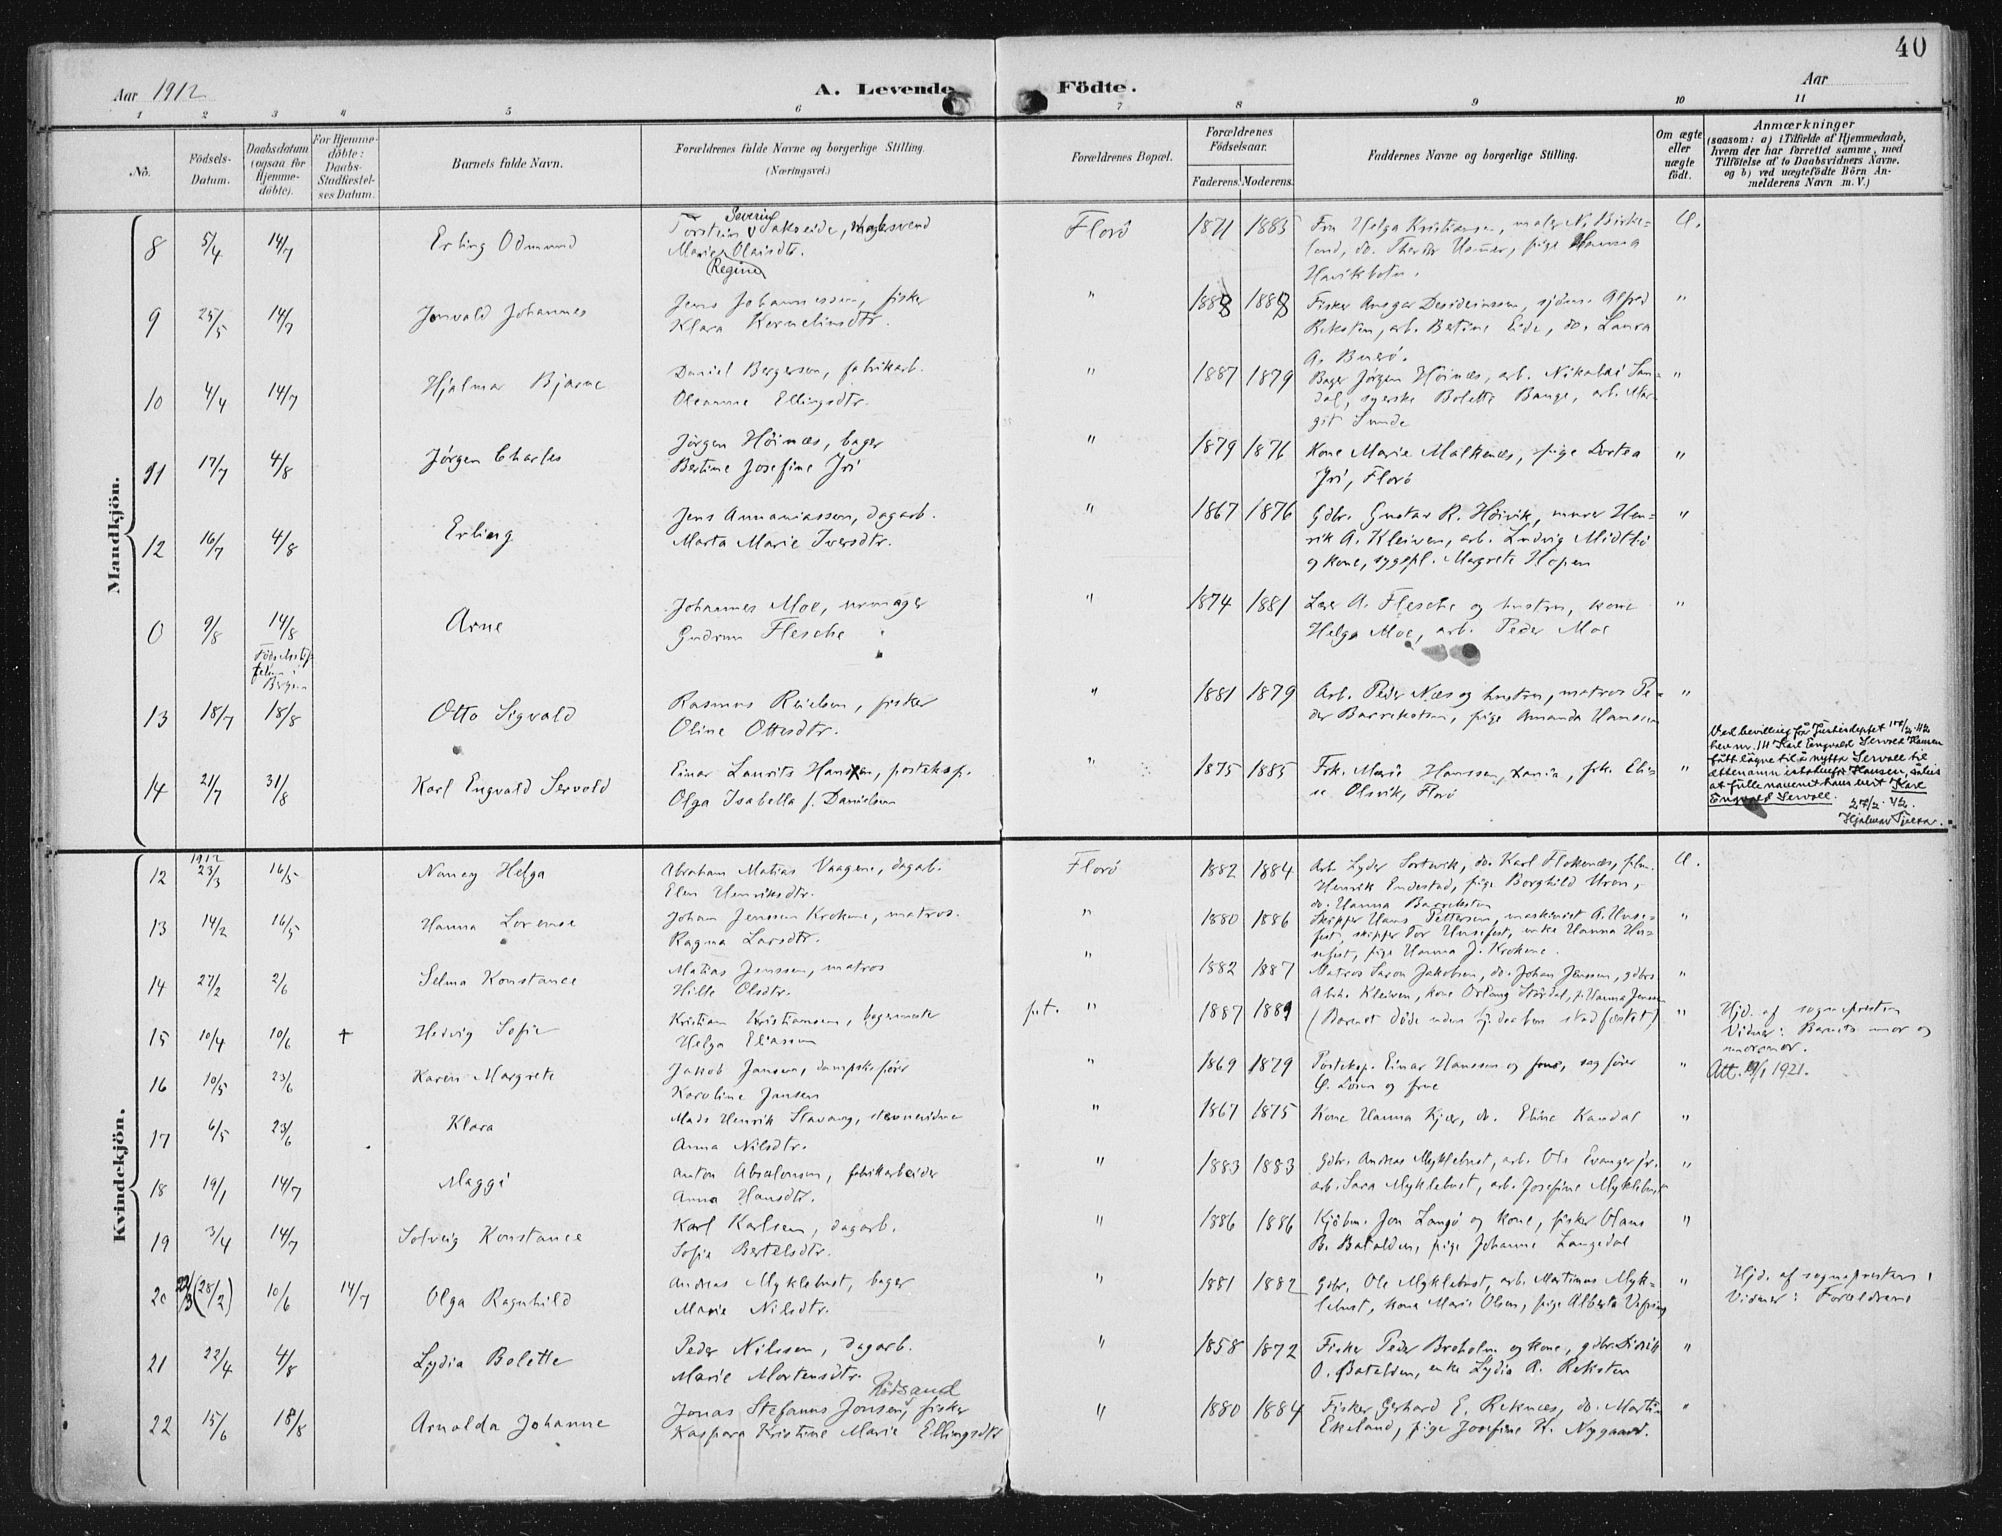 40
Aar 1912
A. Levende Födte.
Aar
1 2 3 4 5 6 7 8 9 10 11
No.
Födsels-
Datum.
Daabsdatum
(ogsaa for
Hjemme-
döbte).
For Hjemme-
döbte:
Daabs-
Stadfæstel-
ses Datum.
Barnets fulde Navn.
Forældrenes fulde Navne og borgerlige Stilling.
(Næringsvei.)
Forældrenes Bopæl.
Forældrenes
Födselsaar.
Faderens. Moderens.
Faddernes Navne og borgerlige Stilling.
Om ægte
eller
uægte
födt.
Anmærkninger
(saasom: a) i Tilfælde af Hjemmedaab,
hvem der har forrettet samme, med
Tilföielse af to Daabsvidners Navne.
og b) ved uægtefödte Börn An-
melderens Navn m. V.)
Mandkjön.
8 5/4 14/7 Erling Odmund
Severin
Torstein
Marie Olaisdtr.
(Regine)
Florö 1871 1883 Fru Helga Kristiansen, maler N. Birke-
land, do.
9 25/5 14/7 Jonvald Johannes
Jens Johannessen, fisker
Klara Kornelinsdtr.
" 1888 1888 Fisker Ansgar Desideriussen, sjöm. Alfred
Reksten, arb. Bertine Eide, do. Laura
A. Buerö.
10 4/4 14/7 Hjalmar Bjarne
Daniel Bergersen, fabrikarb.
Oleanne Ellingsdtr.
" 1887 1879 Bager Jörgen Höinæs, arb. Nikolai San-
dal, syerske Bolette Bauge, arb. Mar-
git Sunde "
11 17/7 4/8 Jörgen Charles
Jörgen Höinæs, bager
Bertine Josefine Jri
" 1879 1876 Kone Marie Malkenæs, pige Dortea
Jri, Florö "
12 16/7 4/8 Erling
Jens Annaniassen, dagarb.
Marta Marie Iversdtr.
" 1867 1876 Gdbr. Gustav R. Höivik, murer Hen-
rik A. Kleiven, arb. Ludvig Midtbö
og kone, sygepl. Margrete Hopen "
0 9/8 14/8 Arne
Johannes Moe, urmager
Gudrun Flesche
Bergen
" 1874 1881 Lær A. Flesche og hustru, kone
Helga Moe, arb. Peder Moe "
13 18/7 18/8 Otto Sigvald
Rasmus Reielsen, fisker
Oline Ottesdtr.
" 1881 1879 Arb. Peder Næs og hustru, matros Pe-
der Barrekstén, pige Amanda Hansen "
14 21/7 31/8 Karl Engvald Servold
Einar Laurits Hansen, posteksp.
Olga Isabella f. Danielsen
" 1875 1885 Frk. Marie Hanssen, frk. Eli-
se Olsvik, Florö "
Ved bevilling frå Justisdeptet 17/2-42
hev nr. 14 Karl Engvald Servold Hansen
fått löyve til å nytta Servoll til
ættenamn istadenfor Hansen, såleis
at fulle navnet hans vert Karl
Engvald Servoll. 27/2-42.
Kvindekjön.
12 1912 23/3 16/5 Nancy Helga
Abraham Matias Vaagene, dagab.
Elen Henriksdtr.
Florö 1882 1884 Arb. Lyder Sortevik, do. Karl Flokenæs,
Henrik Endestad, pige Borghild Uren,
do. Hanna Barreksten
13 14/2 16/5 Hanna Lorense
Johan Jenssen Krokene, matros.
Ragna Larsdtr.
" 1880 1886 Skipper Hans Pettersen, maskinist A. Huse-
fest, skipper Tor Husefest, enke Hanna Hu-
sefest, pige Hanna J. Krokene. "
14 27/2 2/6 Selma Konstance
Matias Jenssen, matros
Hilte Olsdtr.
" 1882 1887 Matros Saron Jakobsen, do. Johan Jenssen, gdbr.
15 10/4 10/6 + Hedvig Sofie
Kristian Kristiansen, bagermester
Helga Eliassen
p.t. " 1887 1889 (Barnet döde uden hj. daaben stadfæstet) "
Hjd. af sognepresten
Vidner: Barnets mor og
mormor.
16 10/5 23/6 Karen Margrete
Jakob Jansen, dampskförer
Karoline Jansen
" 1869 1879 Posteksp. Einar Hanssen og frue, sagförer
"
Att. 11/1 1921.
17 6/5 23/6 Klara
Mads Henrik Stavang, stevnevidne
Anna Nilsdtr.
" 1867 1875 Kone Hanna Kjær, do. Eline Kandal "
18 19/1 14/7 Maggi
Anton Absalonsen, fabrikarbeider
Anna Hansdtr.
" 1883 1883 Gdbr. Andreas Myklebust, arb. Ole Evanger jr.
arb. Sara Myklebust, arb. Josefine Myklebust "
19 3/4 14/7 Solveig Konstance
Karl Karlsen, dagarb.
Sofie Bertelsdtr.
" 1886 1886 Kjöbm. Jon Langö og kone, fisker Olaus
B. Batalden, pige Johanne Langedal "
20 22/3 (28/2) 10/6 14/7 Olga Ragnhild
Andreas Myklebust, bager
Marie Nilsdtr.
" 1881 1882 Gdbr. Ole Myklebust, arb. Martinus Myk-
lebust, kone Marie Olsen, pige Alberta Vefring "
Hjd. af sognepresten,
Vidner: Forældrene
21 22/4 4/8 Lydia Bolette
Peder Nilssen, dagarb.
Marie Mortensdtr.
" 1858 1872 Fisker Peder Breholm og kone, gdbr. Didrik
O. Batalden, enke Lydia R. Reksten "
22 15/6 18/8 Arnolda Johanne
Rödsand
Jonas Stefanus Jonsen, fisker
Kaspara Kristine Marie Ellingsdtr.
" 1880 1884 Fisker Gerhard E. Reknæs, do. Martin
Ekeland, pige Josefine K. Nygaard. "